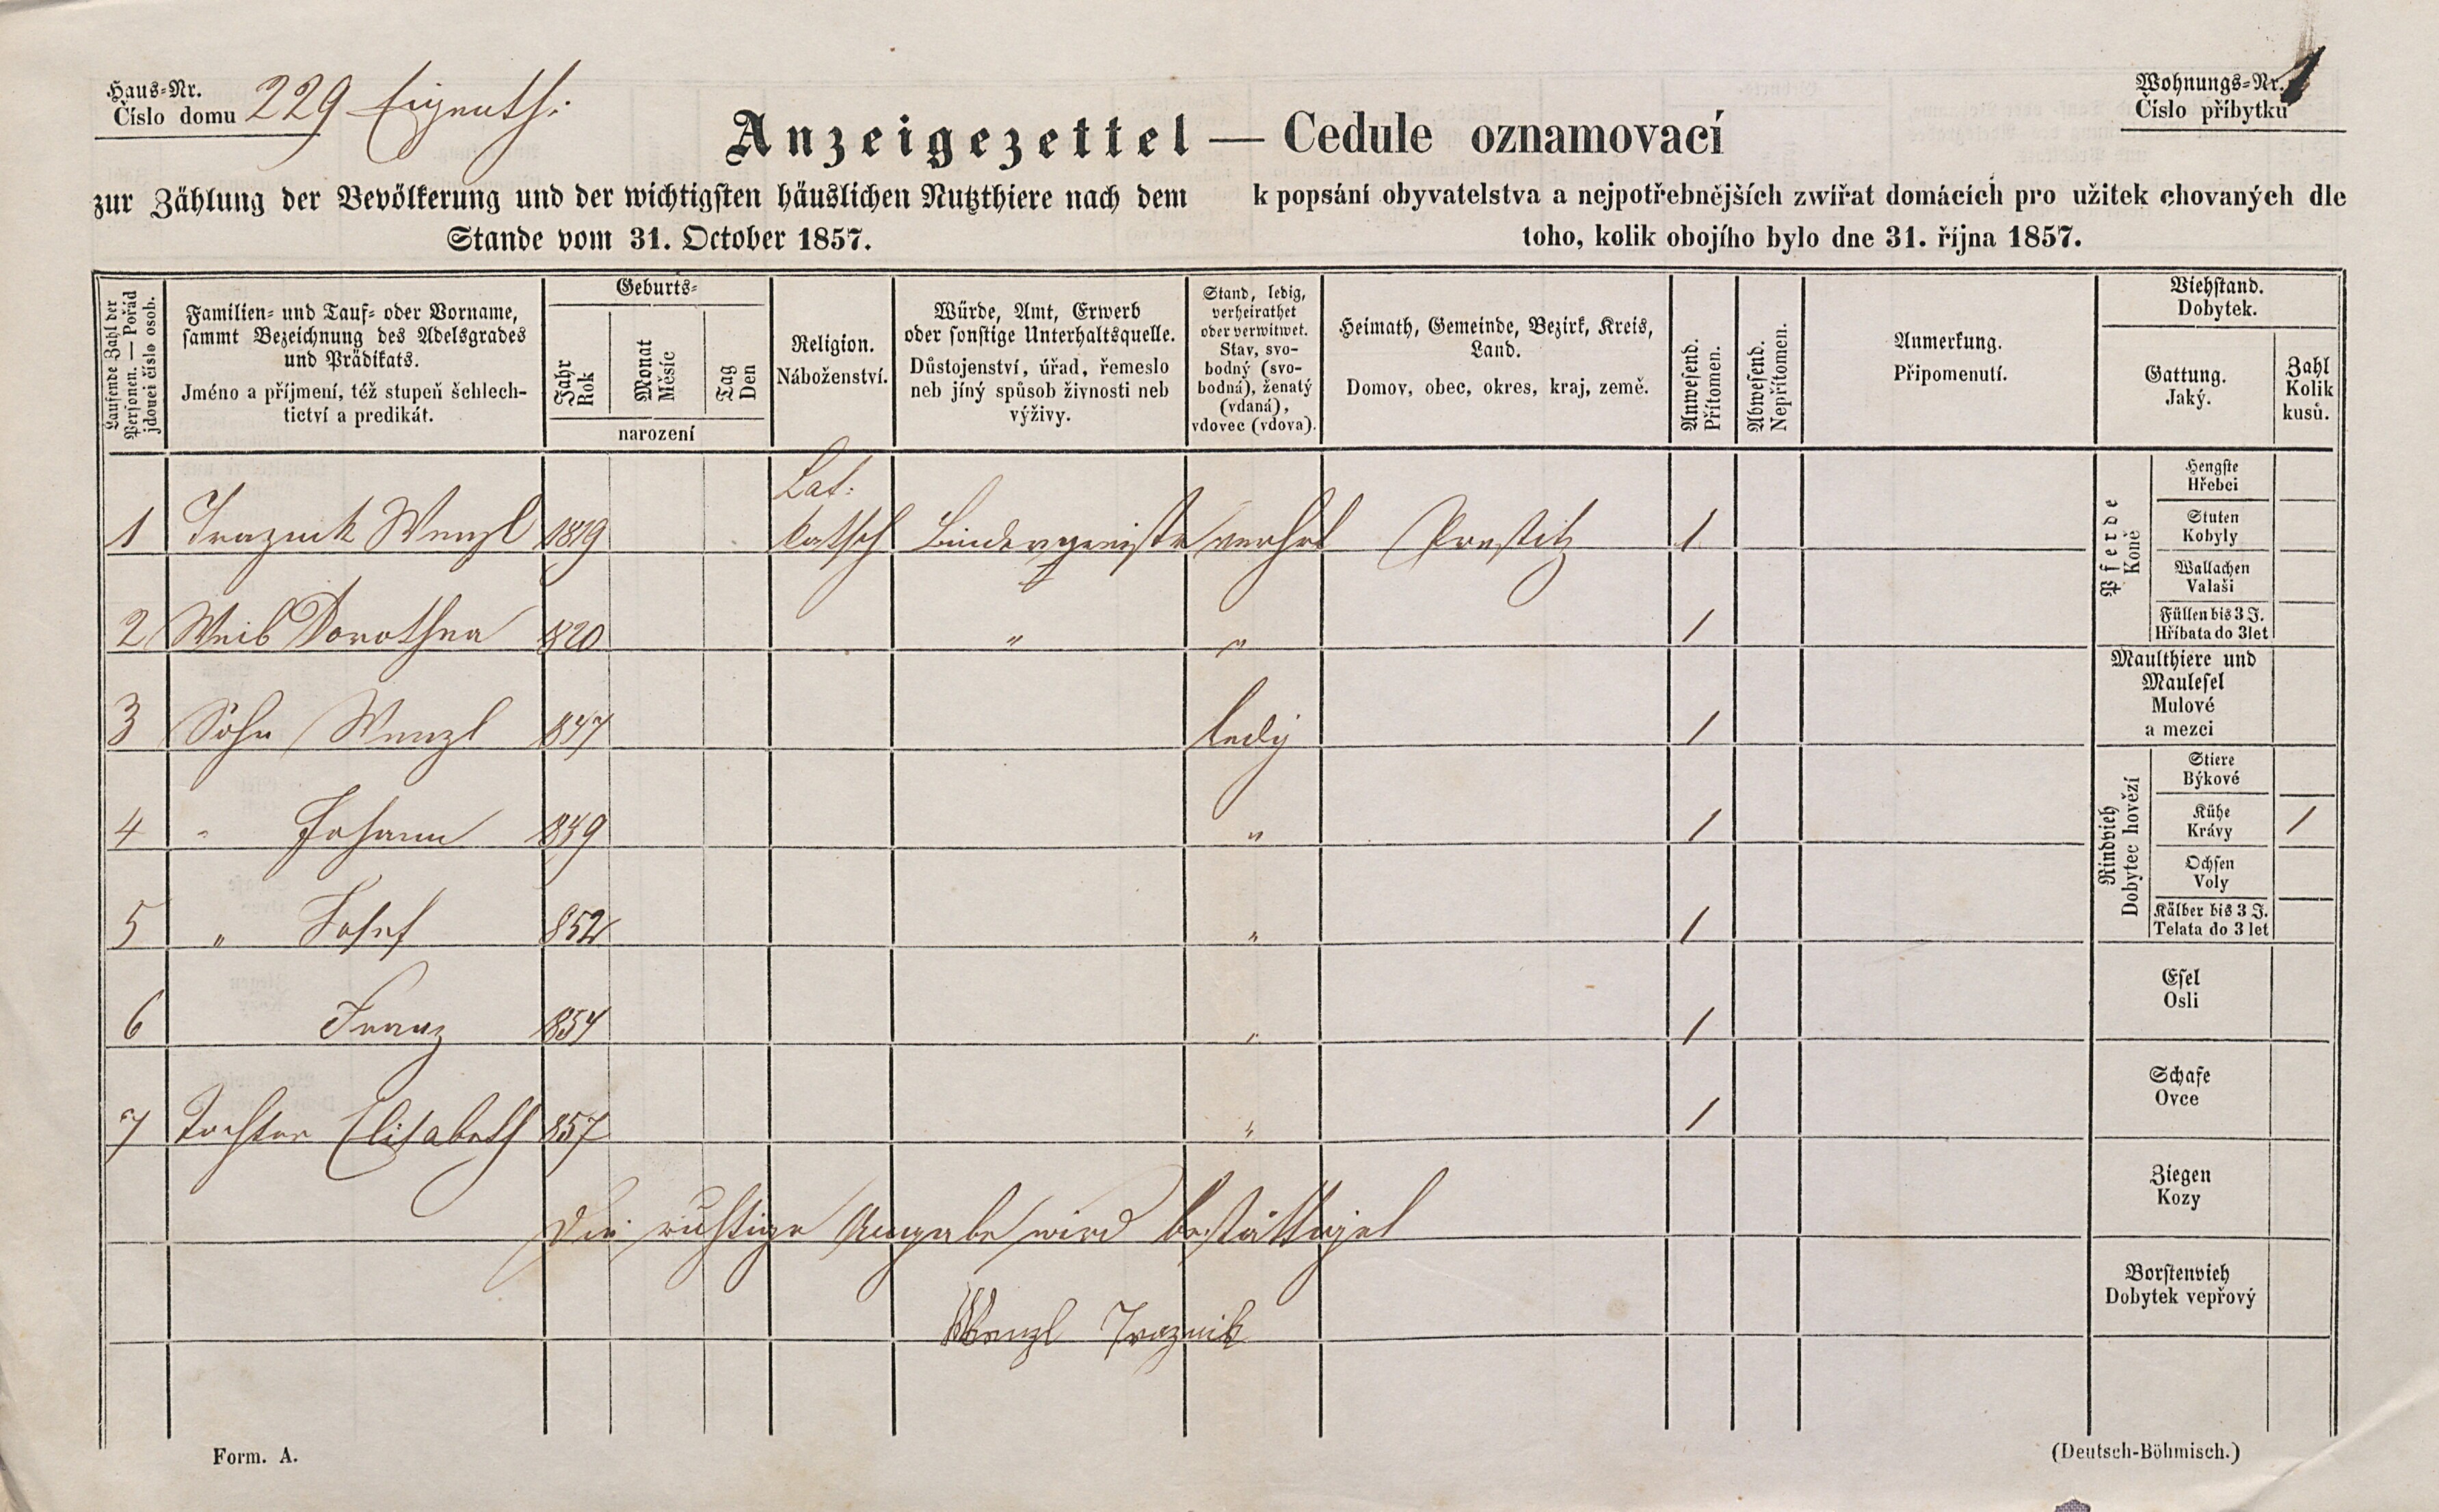 Haus-Nr.
Číslo domu 229 Eigenth:
Wohnungs-Nr. 1
Číslo příbytku
Anzeigezettel — Cedule oznamovací
zur Zählung der Bevölkerung und der wichtigsten häuslichen Nutzthiere nach dem
Stande vom 31. October 1857.
k popsání obyvatelstva a nejpotřebnějších zwířat domácích pro užitek chovaných dle
toho, kolik obojího bylo dne 31. října 1857.
Laufende Zahl der
Personen. — Pořád
jdoucí číslo osob.
Familien- und Tauf- oder Vorname,
sammt Bezeichnung des Adelsgrades
und Prädikats.
Jméno a příjmení, též stupeň šchlech-
tictví a predikát.
Geburts-
Jahr
Rok
Monat
Měsíc
Tag
Den
narození
Religion.
Náboženství.
Würde, Amt, Erwerb
oder sonstige Unterhaltsquelle.
Důstojenství, úřad, řemeslo
neb jíný spůsob živnosti neb
výživy.
Stand, ledig,
verheirathet
oder verwitwet.
Stav, svo-
bodný (svo-
bodná), ženatý
(vdaná),
vdovec (vdova).
Heimath, Gemeinde, Bezirk, Kreis,
Land.
Domov, obec, okres, kraj, země.
Anwesend.
Přítomen.
Abwesend.
Nepřítomen.
Anmerkung.
Připomenutí.
Viehstand.
Dobytek.
Gattung.
Jaký.
Zahl
Kolik
kusů.
1 Traznik Wenzl 1819 Kat: katsch verhrt Prestitz 1
2 Weib Dorothea 820 " " 1
3 Sohn Wenzl 847 ledig 1
4 " Johann 849 " 1
5 " Josef 852 " 1
6 Franz 854 " 1
7 Tochter Elisabeth 857 " 1
Die richtige Angabe wird bestättiget
Wenzl Traznik
Pferde
Koně
Hengste
Hřebci
Stuten
Kobyly
Wallachen
Valaši
Füllen bis 3 J.
Hříbata do 3 let
Maulthiere und
Maulesel
Mulové
a mezci
Rindvieh
Dobytec hovězí
Stiere
Býkové
Kühe
Krávy 1
Ochsen
Voly
Kälber bis 3 J.
Telata do 3 let
Esel
Osli
Schafe
Ovce
Ziegen
Kozy
Borstenvieh
Dobytek vepřový
Form. A.
(Deutsch-Böhmisch.)